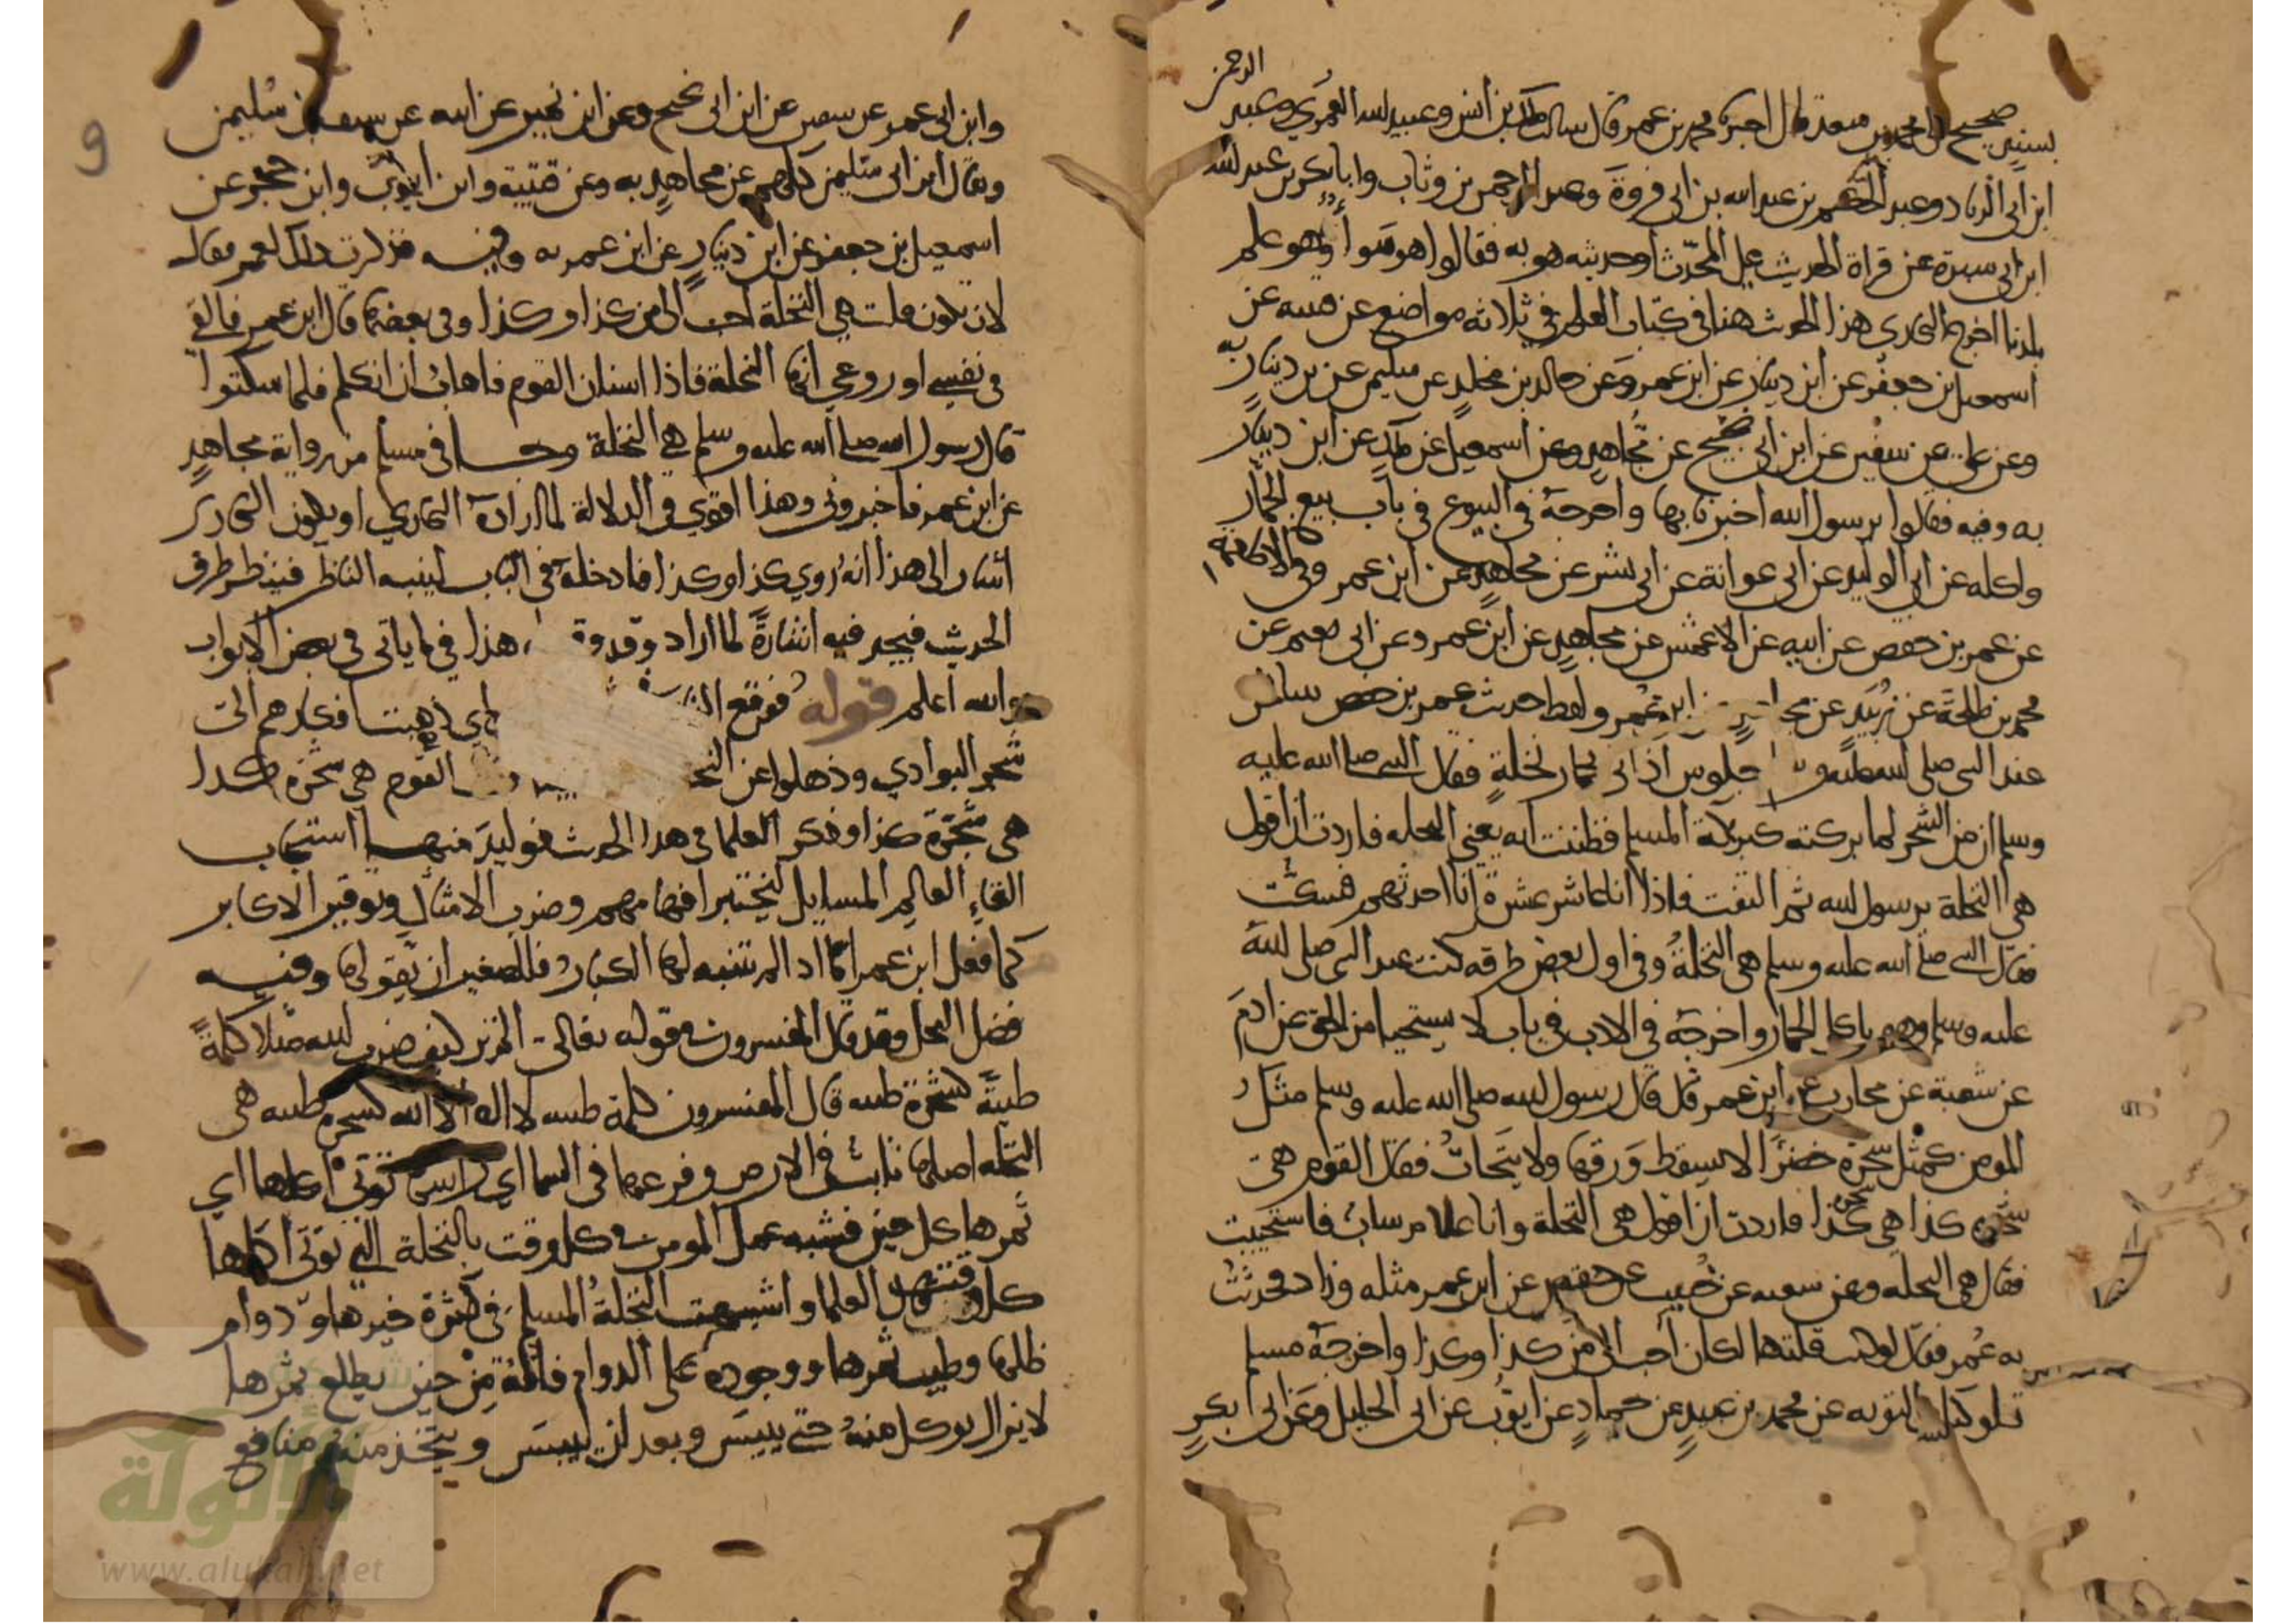 الرحمن
بسند صحيح قال محمد بن سعد قال اخبرنا محمد بن عمر قال سالت ملك بن أنس وعبيد الله العمري وعبد
ابن أبي الزناد وعبد الحكيم بن عبد الله بن ابي فروة وعبد الرحمن بن وثاب وابا بكر بن عبد الله
ابن ابي سبرة عن قراة الحديث على المحدّث أو حديثه هو به فقالوا هو سوأ وهو علم
بلدنا اخرج البخاري هذا الحديث هنا في كتاب العلم في ثلاثة مواضع عن قتيبه عن
اسمعيل بن جعفر عن ابن دينار عن ابن عمر وعن خالد بن مخلد عن سليمن عن بن دينار به
وعن علي عن سفين عن ابن ابي نجيح عن مجاهد وعن اسمعيل عن ملك عن ابن دينار
به وفيه فقالوا يرسول الله اخبرنا بها واخرجه في البيوع في باب بيع الجمّار
واكله عن ابي الوليد عن ابي عوانة عن ابي بشر عن مجاهد عن ابن عمر وفي الاطعمة
عن عمر بن حفص عن ابيه عن الاعمش عن مجاهد عن ابن عمر وعن ابي نعيم عن
محمد بن طلحة عن زبيد عن مجاهد عن ابن عمر ولفظ حديث عمر بن حفص بينا نحن
عند النبي صلى الله عليه و جلوس اذ اتي بجمار نخلة فقال النبي صلى الله عليه
وسلم ان من الشجر لما بركته كبركة المسلم فظننت انه يعني النخله فاردت أن أقول
هي النخلة يرسول الله ثم التفت فاذا أنا عاشر عشرة أنا احدثهم فسكت
فقال النبي صلى الله عليه وسلم هي النخلة وفي اول بعض طرقه كنت عند النبي صلى الله
عليه وسلم وهو ياكل الجمار واخرجه في الادب في باب لا يستحيا من الحق عن ادم
عن شعبة عن محارب عن ابن عمر قال قال رسول الله صلى الله عليه وسلم مثل
المومن كمثل شجرة خضرَا لا يسقط وَرقها ولا يتَحات فقال القوم هي
شجرة كذا هي شجرة كذا فاردت ان اقول هي النخلة وانا غلام شاب فاستحييت
فقال هي النخله وعن شعبه عن خبيب عن حفص عن ابن عمر مثله وزاد فحدثت
به عُمر فقال لو كنت قلتها لكان أحب الي من كذا وكذا واخرجه مسلم
تلو كتاب التوبه عن محمد بن عبيد عن حماد عن ايوب عن ابي الخليل وعن ابي بكر
9
وابن ابي عمر عن سفين عن ابن ابي نجيح وعن ابن نمير عن ابيه عن سيف بن سُليمن
وقال ابن ابي سليمن كلهم عن مجاهد به وعن قتيبة وابن ايوب وابن حجر عن
اسمعيل بن جعفر عن ابن دينار عن ابن عمر به وفيه فذكرت ذلك لعمر فقال
لان تكون قلت هي النخلة احب الي من كذا وكذا وفي بعضها قال ابن عمر فالقي
في نفسي او روعي أنها النخلة فاذا اسنان القوم فاهاب أن اتكلم فلما سكتوا
قال رسول الله صلى الله عليه وسلم هي النخلة وجا في مسلم من رواية مجاهد
عن ابن عمر فاخبروني وهذا اقوي في الدلالة لما اراده البخاري او يكون البخاري
أشار الى هذا أنه رُوي كذا وكذا فادخله في الباب لينبه الناظر فينظر طرق
الحديث فيجد فيه اشارةً لما اراد وقد وقع هذا فيما ياتي في بعض الابواب
والله أعلم قوله فوقع اي ذهبت افكارهم الى
شجر البوادي وذهلوا عن القوم هي شجرة كذا
هي شجرة كذا وذكر العلما في هذا الحديث فوايدَ منها استحباب
القاء العالم المسايل ليختبر افهامهم وضرب الامثال وتوقير الاكابر
كما فعل ابن عمر امّا اذا لم يتنبه لها الكبار فللصغير ان يقولها وفيه
فضل النخل وقد قال المفسرون في قوله تعالى الم تر كيف ضرب الله مثلا كلمةً
طيبَّة كشجرة طيبه قال المفسرون كلمة طيبه لا اله الا الله كشجرة طيبه هي
النخله اصلها ثابت في الارض وفرعها في السما اي راسها تُوتي أكلها اي
ثمرها كل حين فشبه عمل المومن في كل وقت بالنخلة التي توتي اكلها
كل وقت قال العلما واشبهت النخلةُ المسلم في كثرة خيرها ودوام
ظلها وطيب ثمرها ووجوده على الدوام فانَّه مِنْ حين يطلع ثمرها
لا يزال يوكل منهُ حتى ييبسَ وبعد ان ييبسَ ويتخذ منه منافع
الألوكة
www.alukah.net